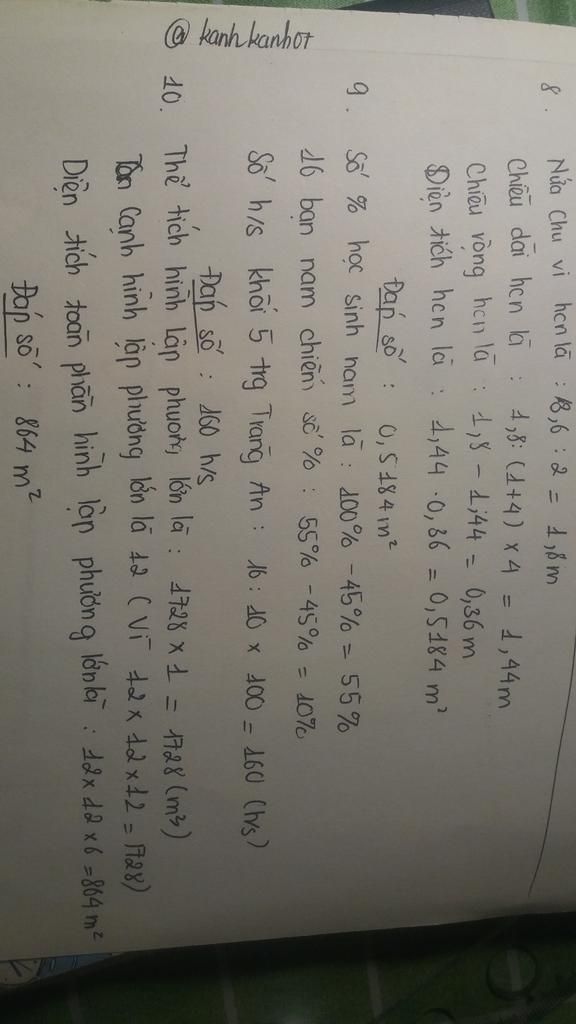 8. Nửa chu vi hcn là : 3,6 : 2 = 1,8m
Chiều dài hcn là : 1,8 : (1+4) × 4 = 1,44m
Chiều rộng hcn là : 1,8 - 1,44 = 0,36m
Diện tích hcn là : 1,44 . 0,36 = 0,5184 m²
Đáp số : 0,5184 m²
9. Số % học sinh nam là : 100% - 45% = 55%
16 bạn nam chiếm số % : 55% - 45% = 10%
Số h/s khối 5 trg Tràng An : 16 : 10 × 100 = 160 (h/s)
Đáp số : 160 h/s
10. Thể tích hình lập phương lớn là : 1728 × 1 = 1728 (m³)
Cạnh hình lập phương lớn là 12 (Vì 12 × 12 × 12 = 1728)
Diện tích toàn phần hình lập phương lớn là : 12 × 12 × 6 = 864 m²
Đáp số : 864 m²
@ kanhkanhot